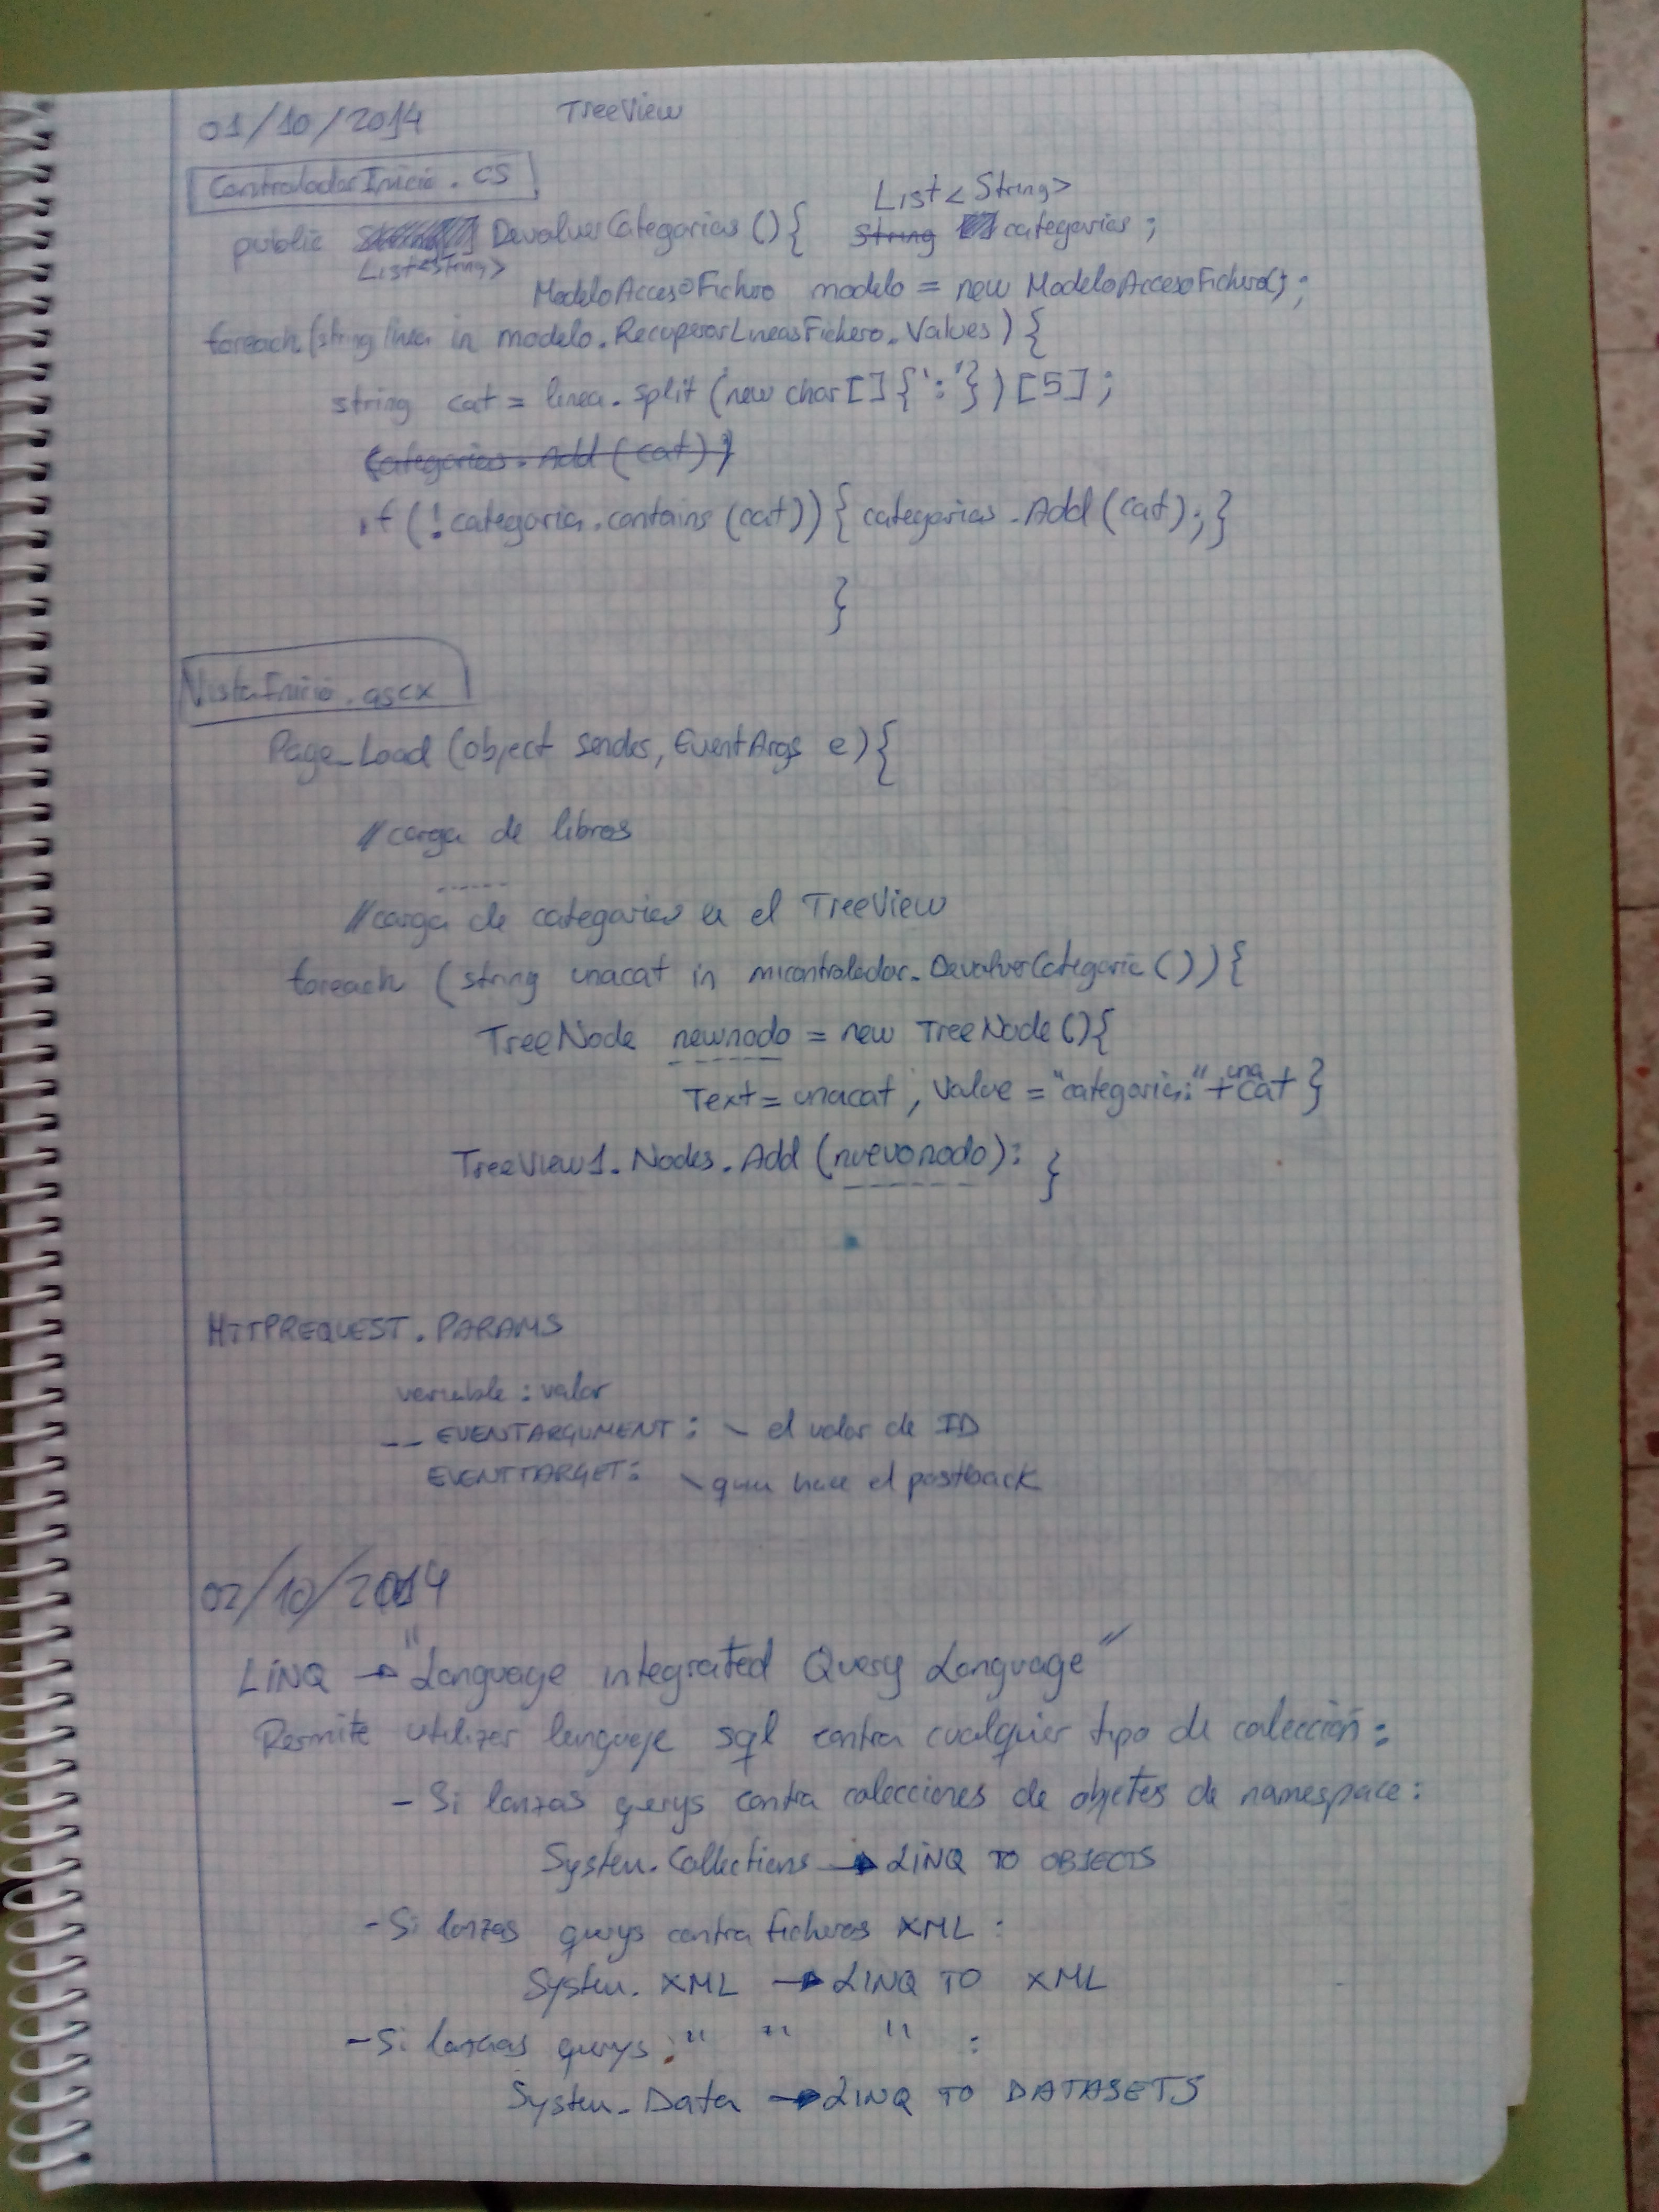 01/10/2014 TreeView
ControladorInicio.cs
List<String>
public DevolverCategorias(){ string categorias;
List<String>
ModeloAccesoFichero modelo = new ModeloAccesoFichero();
foreach(string linea in modelo.RecuperarLineasFichero.Values){
string cat = linea.split(new char[]{':'})[5];
categorias.Add(cat);
if(!categoria.contains(cat)){categorias.Add(cat);}
}
VistaInicio.ascx
Page_Load(object sender, EventArgs e){
//carga de libros
------
//carga de categorias en el TreeView
foreach (string unacat in micontrolador.DevolverCategoria()){
TreeNode newnodo = new TreeNode(){
Text = unacat, Value = "categoria:" + unacat}
TreeView1.Nodes.Add(nuevonodo); }
HTTPREQUEST.PARAMS
variable : valor
__EVENTARGUMENT: \ el valor de ID
EVENTTARGET: \ quien hace el postback
02/10/2014
LINQ → "Language integrated Query Language"
Permite utilizar lenguaje sql contra cualquier tipo de colección:
- Si lanzas querys contra colecciones de objetos de namespace:
System.Collections → LINQ TO OBJECTS
- Si lanzas querys contra ficheros XML:
System.XML → LINQ TO XML
- Si lanzas querys " " " :
System.Data → LINQ TO DATASETS